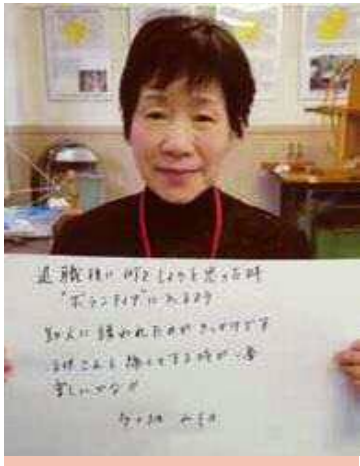 退職後に何をしようと思った時
"ボランティア"になろう
知人に誘われたのがきっかけです
子供さんと接してする時が一番
楽しいかな!!